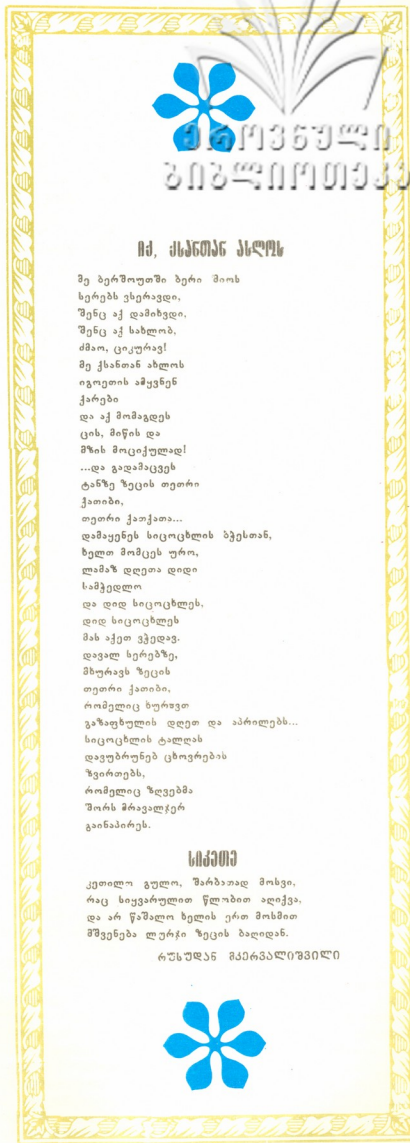 ეროვნული
ბიბლიოთეკა
ჩქ, ქსანთან ახლოს
მე ბერშოუთში ბერი მიოს
სერებს ვსერავდი,
შენც აქ დამიხვდი,
შენც აქ სახლობ,
ძმაო, ციკურავ!
მე ქსანთან ახლოს
იგოეთის ამყვნენ
ქარები
და აქ მომაგდეს
ცის, მიწის და
მზის მოციქულად!
...და გადამაცვეს
ტანზე ზეცის თეთრი
ქათიბი,
თეთრი ქათქათა...
დამაყენეს სიცოცხლის ბჭესთან,
ხელთ მომცეს ურო,
ლამაზ დღეთა დიდი
სამჭედლო
და დიდ სიცოცხლეს,
დიდ სიცოცხლეს
მას აქეთ ვჭედავ.
დავალ სერებზე,
მხურავს ზეცის
თეთრი ქათიბი,
რომელიც ხურავთ
გაზაფხულის დღეთ და აპრილებს...
სიცოცხლის ტალღას
დავუბრუნებ ცხოვრების
ზვირთებს,
რომელიც ზღვებმა
შორს მრავალჯერ
გაინაპირეს.
სიკეთე
კეთილო გულო, შარბათად მოსვი,
რაც სიყვარულით წლობით აღიქვა,
და არ წაშალო ხელის ერთ მოსმით
მშვენება ლურჯი ზეცის ბაღიდან.
რუსუდან მკერვალიშვილი